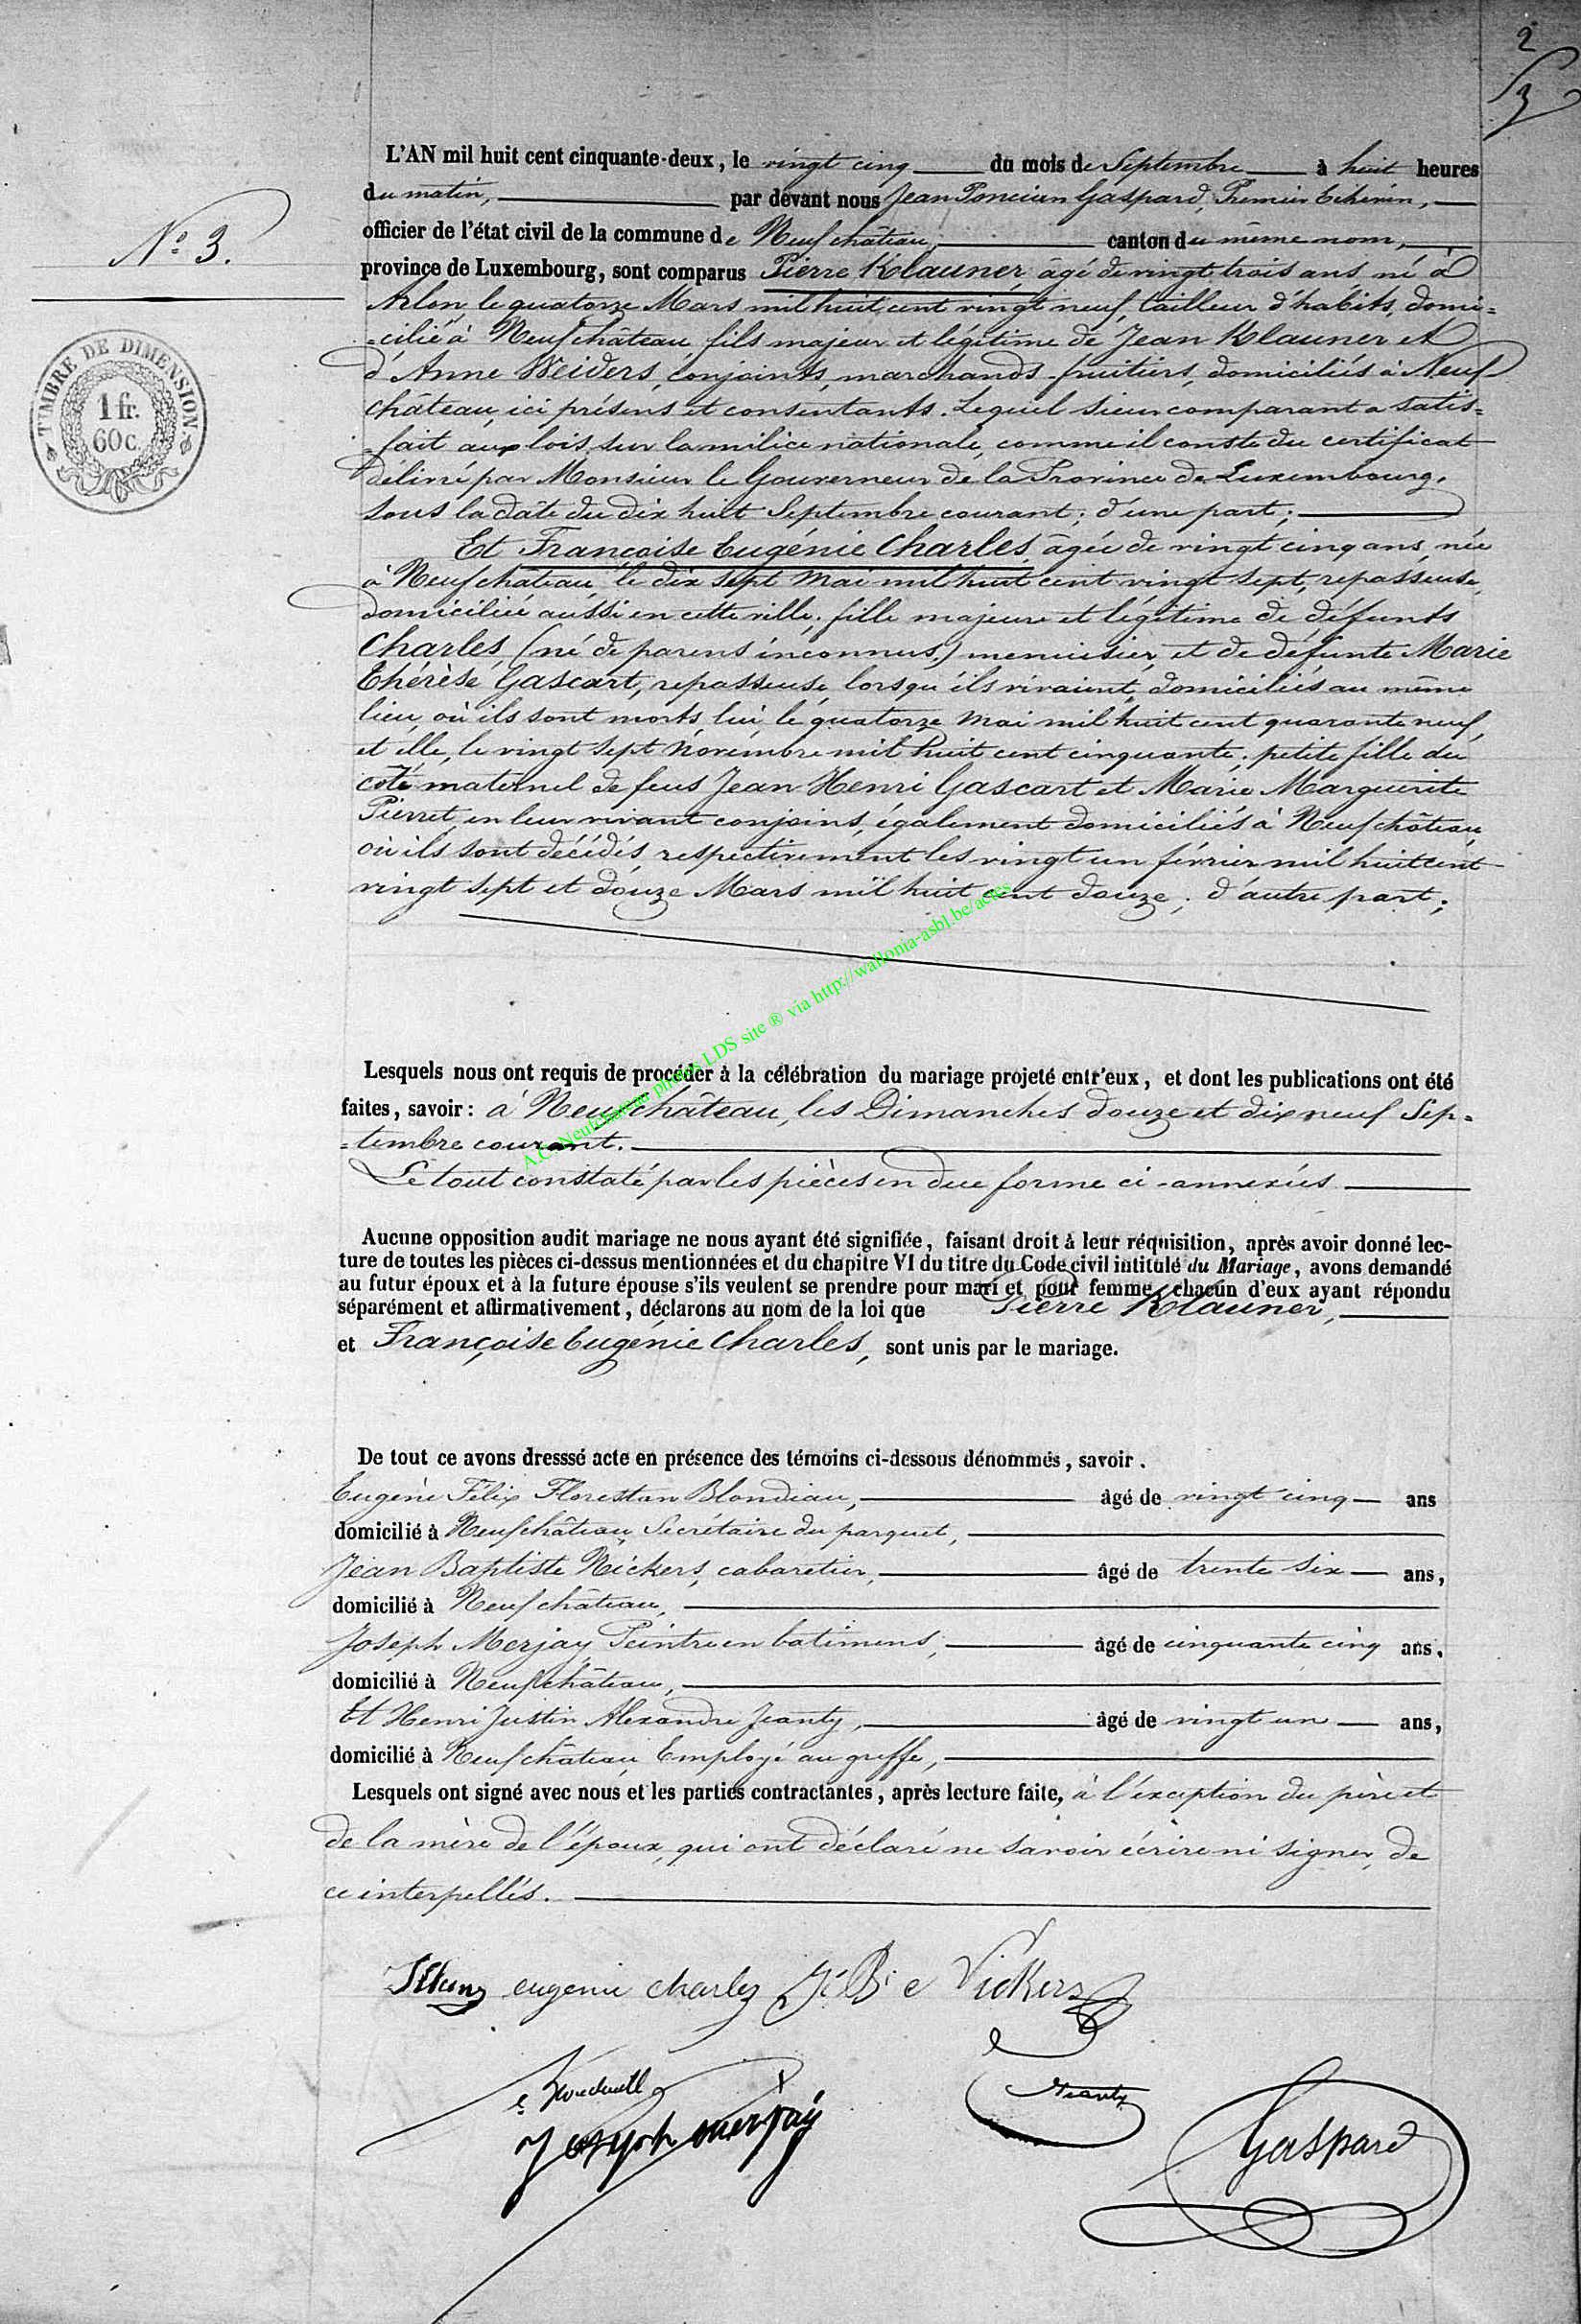 2
3
L'AN mil huit cent cinquante-deux, le vingt cinq du mois de Septembre à huit heures
du matin, par devant nous Jean Poncian Gaspard, Premier Echevin,
officier de l'état civil de la commune de Neufchâteau, canton du même nom,
N.º 3.
province de Luxembourg, sont comparus Pierre Klauner, âgé de vingt trois ans né à
Arlon, le quatorze Mars mil huit cent vingt neuf, tailleur d'habits, domi=
=cilié à Neufchâteau, fils majeur et légitime de Jean Klauner et
d'Anne Weiders, conjoints, marchands-fruitiers, domiciliés à Neuf
château, ici présens et consentants. Lequel sieur comparant a satis=
=fait aux lois sur la milice nationale, comme il conste du certificat
délivré par Monsieur le Gouverneur de la Province de Luxembourg,
sous la dâte du dix huit Septembre courant; d'une part;
TIMBRE DE DIMENSION
1 fr.
60 c.
Et Françoise Eugénie Charles, âgée de vingt cinq ans, née
à Neufchâteau, le dix sept Mai mil huit cent vingt sept, repasseuse,
domiciliée aussi en cette ville; fille majeure et légitime de défunts
Charles, (né de parens inconnus.) menuisier, et de défunte Marie
Thérèse Gascart, repasseuse, lorsqu'ils vivaient, domiciliés au même
lieu, où ils sont morts, lui, le quatorze mai mil huit cent quarante neuf,
et elle, le vingt sept Novembre mil huit cent cinquante; petite fille du
côté maternel de feus Jean Henri Gascart et Marie Marguerite
Pierret, en leur vivant conjoins, également domiciliés à Neufchâteau,
où ils sont décédés respectivement les vingt un février mil huit cent
vingt sept et douze Mars mil huit cent douze; d'autre part;
A.C. Neufchâteau photos LDS site ® via http://wallonia-asbl.be/actes
Lesquels nous ont requis de procéder à la célébration du mariage projeté entr'eux, et dont les publications ont été
faites, savoir: à Neufchâteau, les Dimanches douze et dix neuf Sep=
=tembre courant.
Le tout constaté par les pièces en due forme ci-annexées
Aucune opposition audit mariage ne nous ayant été signifiée, faisant droit à leur réquisition, après avoir donné lec-
ture de toutes les pièces ci-dessus mentionnées et du chapitre VI du titre du Code civil intitulé du Mariage, avons demandé
au futur époux et à la future épouse s'ils veulent se prendre pour mari et pour femme, chacun d'eux ayant répondu
séparément et affirmativement, déclarons au nom de la loi que Pierre Klauner,
et Françoise Eugénie Charles, sont unis par le mariage.
De tout ce avons dresssé acte en présence des témoins ci-dessous dénommés, savoir.
Eugène Félix Florestan Blondiau, âgé de vingt cinq ans
domicilié à Neufchâteau, Secrétaire du parquet,
Jean Baptiste Nickers, cabaretier, âgé de trente six ans,
domicilié à Neufchâteau,
Joseph Merjay, Peintre en batimens, âgé de cinquante cinq ans,
domicilié à Neufchâteau,
Et Henri Justin Alexandre Jeanty, âgé de vingt un ans,
domicilié à Neufchâteau, Employé au greffe,
Lesquels ont signé avec nous et les parties contractantes, après lecture faite, à l'exception du père et
de la mère de l'époux, qui ont déclaré ne savoir écrire ni signer, de
ce interpellés.
eugenie charles J. Bte Nickers
Jeanty
Joseph merjay
Gaspard